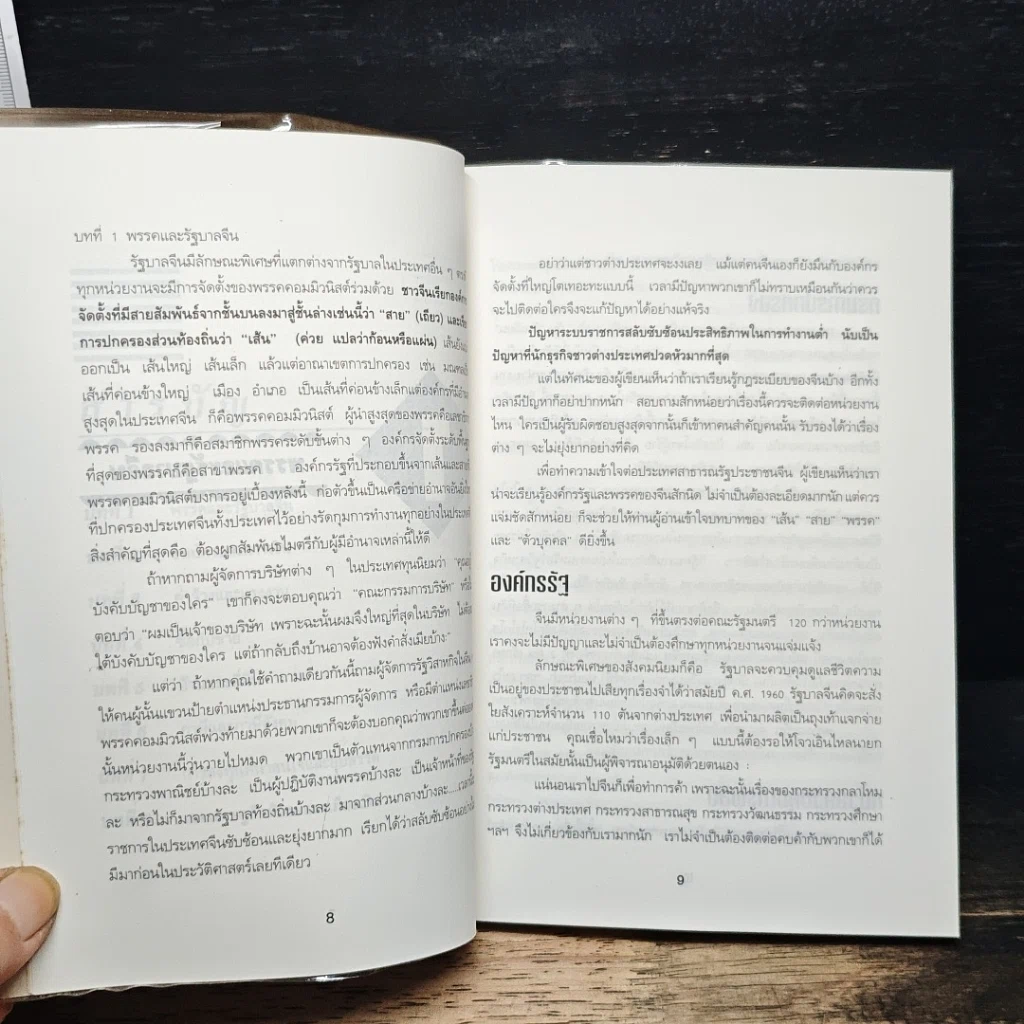 บทที่ 1 พรรคและรัฐบาลจีน
รัฐบาลจีนมีลักษณะพิเศษที่แตกต่างจากรัฐบาลในประเทศอื่น ๆ
ทุกหน่วยงานจะมีการจัดตั้งของพรรคคอมมิวนิสต์ร่วมด้วย ชาวจีนเรียกองค์กร
จัดตั้งที่มีสายสัมพันธ์จากชั้นบนลงมาสู่ชั้นล่างเช่นนี้ว่า "สาย" (เถียว) และเรียก
การปกครองส่วนท้องถิ่นว่า "เส้น" (ค่วย แปลว่าก้อนหรือแผ่น) เส้นยัง
ออกเป็น เส้นใหญ่ เส้นเล็ก แล้วแต่อาณาเขตการปกครอง เช่น มณฑล
เส้นที่ค่อนข้างใหญ่ เมือง อำเภอ เป็นเส้นที่ค่อนข้างเล็กแต่องค์กรที่มีอำนาจ
สูงสุดในประเทศจีน ก็คือพรรคคอมมิวนิสต์ ผู้นำสูงสุดของพรรคคือเลขาธิการ
พรรค รองลงมาก็คือสมาชิกพรรคระดับชั้นต่าง ๆ องค์กรจัดตั้งระดับพื้นฐาน
ที่สุดของพรรคก็คือสาขาพรรค องค์กรรัฐที่ประกอบขึ้นจากเส้นและสาย
พรรคคอมมิวนิสต์บงการอยู่เบื้องหลังนี้ ก่อตัวขึ้นเป็นเครือข่ายอำนาจอันยิ่งใหญ่
ที่ปกครองประเทศจีนทั้งประเทศไว้อย่างรัดกุมการทำงานทุกอย่างในประเทศ
สิ่งสำคัญที่สุดคือ ต้องผูกสัมพันธไมตรีกับผู้มีอำนาจเหล่านี้ให้ดี
ถ้าหากถามผู้จัดการบริษัทต่าง ๆ ในประเทศทุนนิยมว่า "คุณอยู่
บังคับบัญชาของใคร" เขาก็คงจะตอบคุณว่า "คณะกรรมการบริษัท" หรือ
ตอบว่า "ผมเป็นเจ้าของบริษัท เพราะฉะนั้นผมจึงใหญ่ที่สุดในบริษัท ไม่ต้อง
ใต้บังคับบัญชาของใคร แต่ถ้ากลับถึงบ้านอาจต้องฟังคำสั่งเมียบ้าง"
แต่ว่า ถ้าหากคุณใช้คำถามเดียวกันนี้ถามผู้จัดการรัฐวิสาหกิจใน
ให้คนผู้นั้นแขวนป้ายตำแหน่งประธานกรรมการผู้จัดการ หรือมีตำแหน่ง
พรรคคอมมิวนิสต์พ่วงท้ายมาด้วยพวกเขาก็จะต้องบอกคุณว่าพวกเขาขึ้น
นั้นหน่วยงานนี้วุ่นวายไปหมด พวกเขาเป็นตัวแทนจากกรมการปกครอง
กระทรวงพาณิชย์บ้างละ เป็นผู้ปฏิบัติงานพรรคบ้างละ เป็นเจ้าหน้าที่
ละ หรือไม่ก็มาจากรัฐบาลท้องถิ่นบ้างละ มาจากส่วนกลางบ้างละ....
ราชการในประเทศจีนซับซ้อนและยุ่งยากมาก เรียกได้ว่าสลับซับซ้อนอย่าง
มีมาก่อนในประวัติศาสตร์เลยทีเดียว
8
อย่าว่าแต่ชาวต่างประเทศจะงงเลย แม้แต่คนจีนเองก็ยังมึนกับองค์กร
จัดตั้งที่ใหญ่โตเทอะทะแบบนี้ เวลามีปัญหาพวกเขาก็ไม่ทราบเหมือนกันว่าควร
จะไปติดต่อใครจึงจะแก้ปัญหาได้อย่างแท้จริง
ปัญหาระบบราชการสลับซับซ้อนประสิทธิภาพในการทำงานต่ำ นับเป็น
ปัญหาที่นักธุรกิจชาวต่างประเทศปวดหัวมากที่สุด
แต่ในทัศนะของผู้เขียนเห็นว่าถ้าเราเรียนรู้กฎระเบียบของจีนบ้าง อีกทั้ง
เวลามีปัญหาก็อย่าปากหนัก สอบถามสักหน่อยว่าเรื่องนี้ควรจะติดต่อหน่วยงาน
ไหน ใครเป็นผู้รับผิดชอบสูงสุดจากนั้นก็เข้าหาคนสำคัญคนนั้น รับรองได้ว่าเรื่อง
ต่าง ๆ จะไม่ยุ่งยากอย่างที่คิด
เพื่อทำความเข้าใจต่อประเทศสาธารณรัฐประชาชนจีน ผู้เขียนเห็นว่าเรา
น่าจะเรียนรู้องค์กรรัฐและพรรคของจีนสักนิด ไม่จำเป็นต้องละเอียดมากนัก แต่ควร
แจ่มชัดสักหน่อย ก็จะช่วยให้ท่านผู้อ่านเข้าใจบทบาทของ "เส้น" "สาย" "พรรค"
และ "ตัวบุคคล" ดียิ่งขึ้น
องค์กรรัฐ
จีนมีหน่วยงานต่าง ๆ ที่ขึ้นตรงต่อคณะรัฐมนตรี 120 กว่าหน่วยงาน
เราคงจะไม่มีปัญญาและไม่จำเป็นต้องศึกษาทุกหน่วยงานจนแจ่มแจ้ง
ลักษณะพิเศษของสังคมนิยมก็คือ รัฐบาลจะควบคุมดูแลชีวิตความ
เป็นอยู่ของประชาชนไปเสียทุกเรื่องจำได้ว่าสมัยปี ค.ศ. 1960 รัฐบาลจีนคิดจะสั่ง
ใยสังเคราะห์จำนวน 110 ตันจากต่างประเทศ เพื่อนำมาผลิตเป็นถุงเท้าแจกจ่าย
แก่ประชาชน คุณเชื่อไหมว่าเรื่องเล็ก ๆ แบบนี้ต้องรอให้โจวเอินไหลนายก
รัฐมนตรีในสมัยนั้นเป็นผู้พิจารณาอนุมัติด้วยตนเอง :
แน่นอนเราไปจีนก็เพื่อทำการค้า เพราะฉะนั้นเรื่องของกระทรวงกลาโหม
กระทรวงต่างประเทศ กระทรวงสาธารณสุข กระทรวงวัฒนธรรม กระทรวงศึกษา
ฯลฯ จึงไม่เกี่ยวข้องกับเรามากนัก เราไม่จำเป็นต้องติดต่อคบค้ากับพวกเขาก็ได้
9